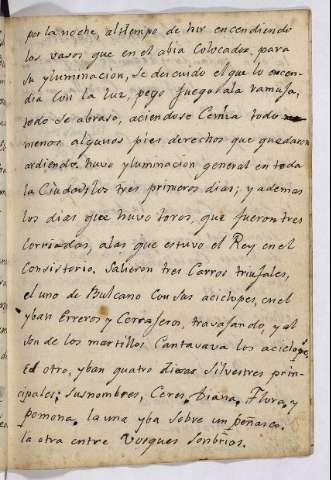 por la noche, al tiempo de hir encendiendo
los vasos que en el abia Colocados, para
su yluminacion, se descuido el que lo encen-
dia con la luz, pego fuego ala ramusa,
todo se abraso, aciendose Ceniza todo
menos algunos pies derechos que quedaron
ardiendo. huvo yluminacion general en toda
la Ciudad los tres primeros dias; y ademas
los dias que huvo toros, que fueron tres
corriadas, alas que estuvo el Rey en el
Consistorio. Salieron tres Carros triufales,
el uno de Bulcano Con sus aciclopes, en el
yban Erreros y Cerrageros, travajando, y al
son de los martillos Cantavava los aciclopes,
Ed otro, yban quatro diosas Silvestres prin-
cipales; sus nombres, Ceres, Diana, Flora, y
pomona. la una yba sobre un peñasco.
la otra entre Vosques sonbrios.